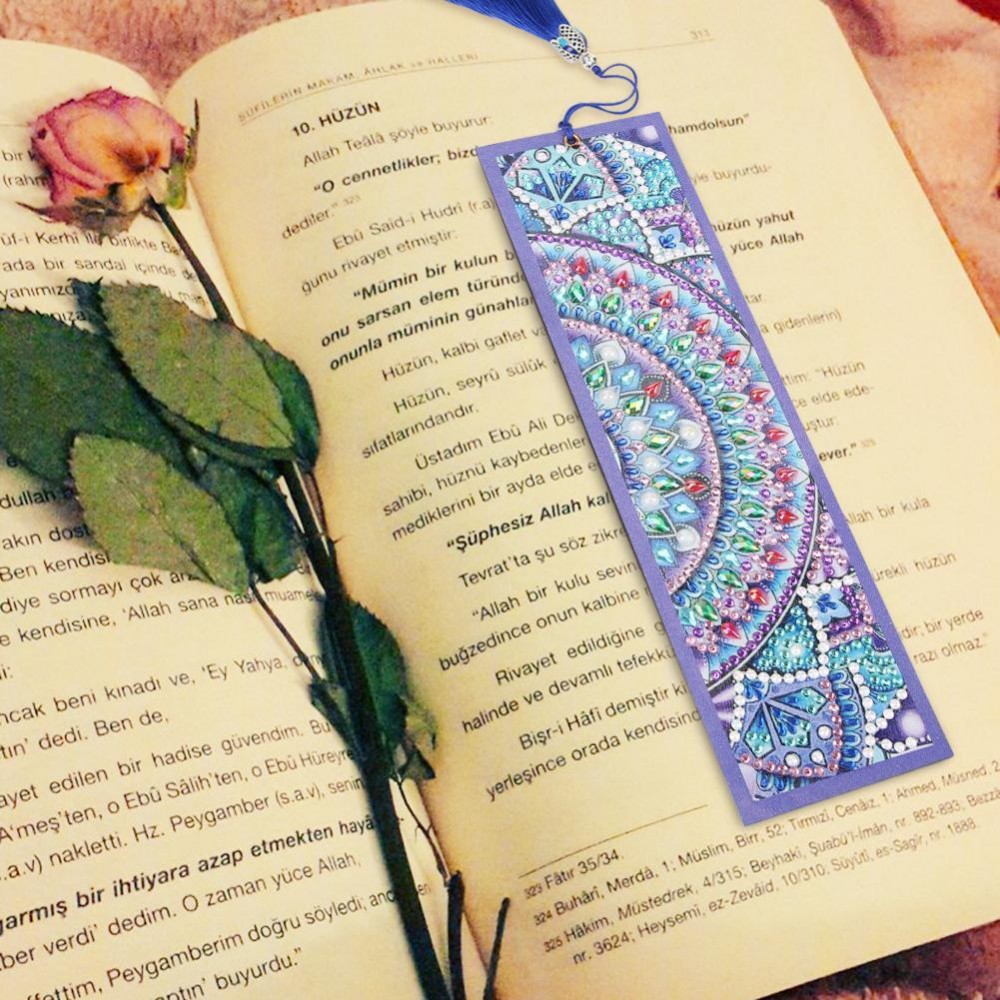 bir
(rahm
ûf-i Kerhî ile birlikte
ada bir sandal içinde
yanımızd
dullah
akın dost
Ben kendisi
diye sormayı çok
e kendisine, 'Allah sana
ncak beni kınadı ve, 'Ey Yahya,
tın' dedi. Ben de,
ayet edilen bir hadise güvendim. Bu
A'meş'ten, o Ebû Sâlih'ten, o Ebû Hüreyre
.a.v) nakletti. Hz. Peygamber (s.a.v), senin
garmış bir ihtiyara azap etmekten hayâ
ber verdi' dedim. O zaman yüce Allah,
ffettim, Peygamberim doğru söyledi;
aptın' buyurdu."
SÛFÎLERİN MAKAM, AHLAK ve HALLERİ 311
10. HÜZÜN
Allah Teâlâ şöyle buyurur:
"O cennetlikler; bizd hamdolsun"
dediler." 323
Ebû Saîd-i Hudrî (r.a) yle buyurdu-
ğunu rivayet etmiştir:
"Mümin bir kulun b hüzün yahut
onu sarsan elem türünd yüce Allah
onunla müminin günahla
Hüzün, kalbi gaflet va a gidenlerin)
Hüzün, seyrü sülûk
sıfatlarındandır.
Üstadım Ebû Ali De ttim: "Hüzün
sahibi, hüznü kaybedenler ce elde ede-
mediklerini bir ayda elde e uştur:
"Şüphesiz Allah kal ever." 325
Tevrat'ta şu söz zikre
"Allah bir kulu sevin llah bir kula
buğzedince onun kalbine
Rivayet edildiğine g ürekli hüzün
halinde ve devamlı tefekkü
Bişr-i Hâfî demiştir ki dir; bir yerde
yerleşince orada kendisind razı olmaz."
323 Fâtır 35/34.
324 Buhârî, Merdâ, 1; Müslim, Birr, 52; Tirmizî, Cenâiz, 1; Ahmed, Müsned, 2
325 Hâkim, Müstedrek, 4/315; Beyhakî, Şuabü'l-Îmân, nr. 892-893; Bezzâ
nr. 3624; Heysemî, ez-Zevâid, 10/310; Süyûtî, es-Sagîr, nr. 1888.